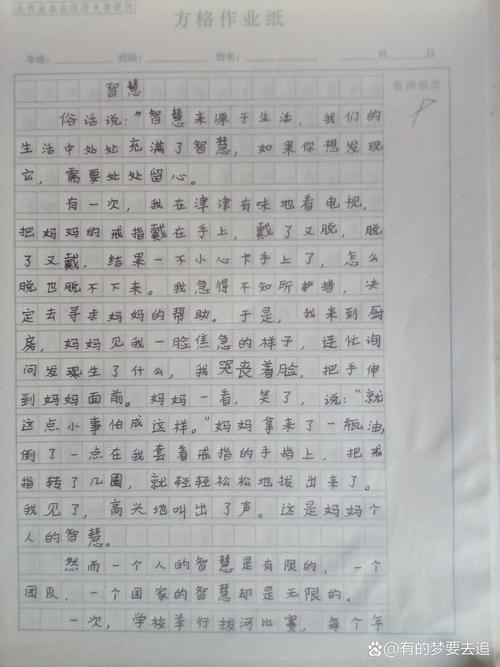 此作业本由政府免费提供
方格作业纸
年级： 班级： 姓名： 月 日
教师批改
智慧
俗话说："智慧来源于生活，我们的
生活中处处充满了智慧，如果你想发现
它，需要处处留心。
有一次，我在津津有味地看电视，
把妈妈的戒指戴在手上，戴了又脱，脱
了又戴，结果一不小心卡手上了，怎么
脱也脱不下来。我急得不知所措，决
定去寻求妈妈的帮助。于是，我来到厨
房，妈妈见我一脸焦急的样子，连忙询
问发现生了什么，我哭丧着脸，把手伸
到妈妈面前。妈妈一看，笑了，说："就
这点小事怕成这样。"妈妈拿来了一瓶油，
倒了一点在我套着戒指的手指上，把戒
指转了几圈，就轻轻松松地拔出来了。
我见了，高兴地叫出了声。这是妈妈个
人的智慧。
然而一个人的智慧是有限的，一个
团队，一个国家的智慧却是无限的。
一次，学校举行拔河比赛，每个年
@有的梦要去追